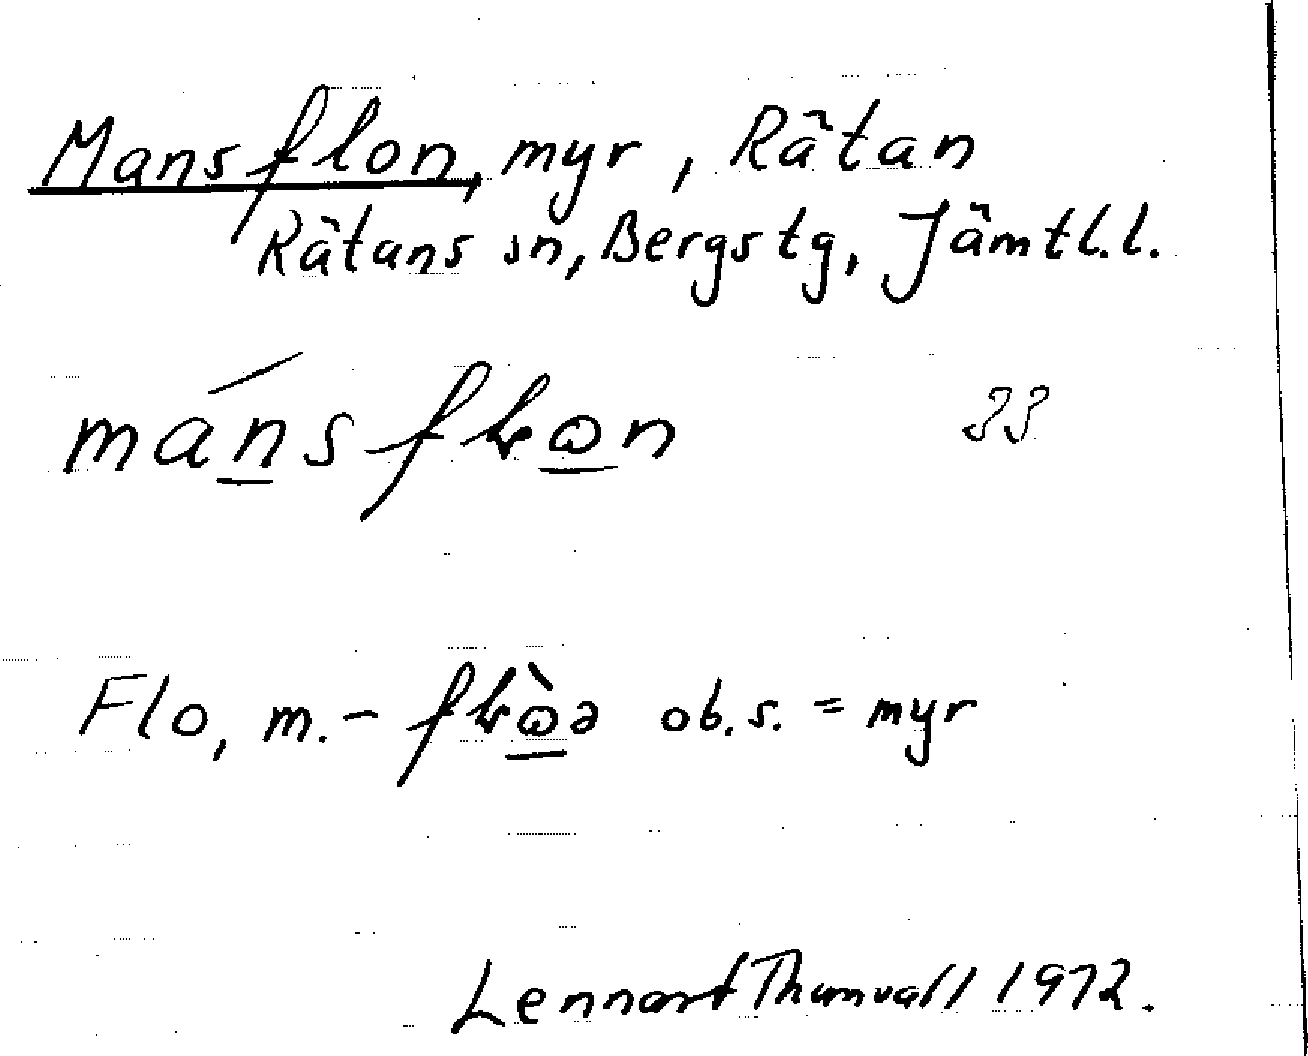 Mansflon, myr, Rätan
Rätans sn, Bergs tg, Jämtl.l.
máns fɫⱺn 33
Flo, m. - fɫⱺ̀ə ob.s. = myr
Lennart Thunvall 1972.